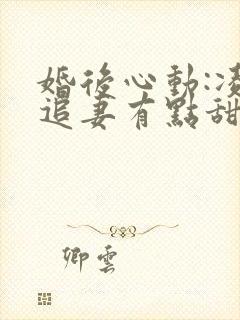 婚後心動:凌
追妻有點甜
卿雲